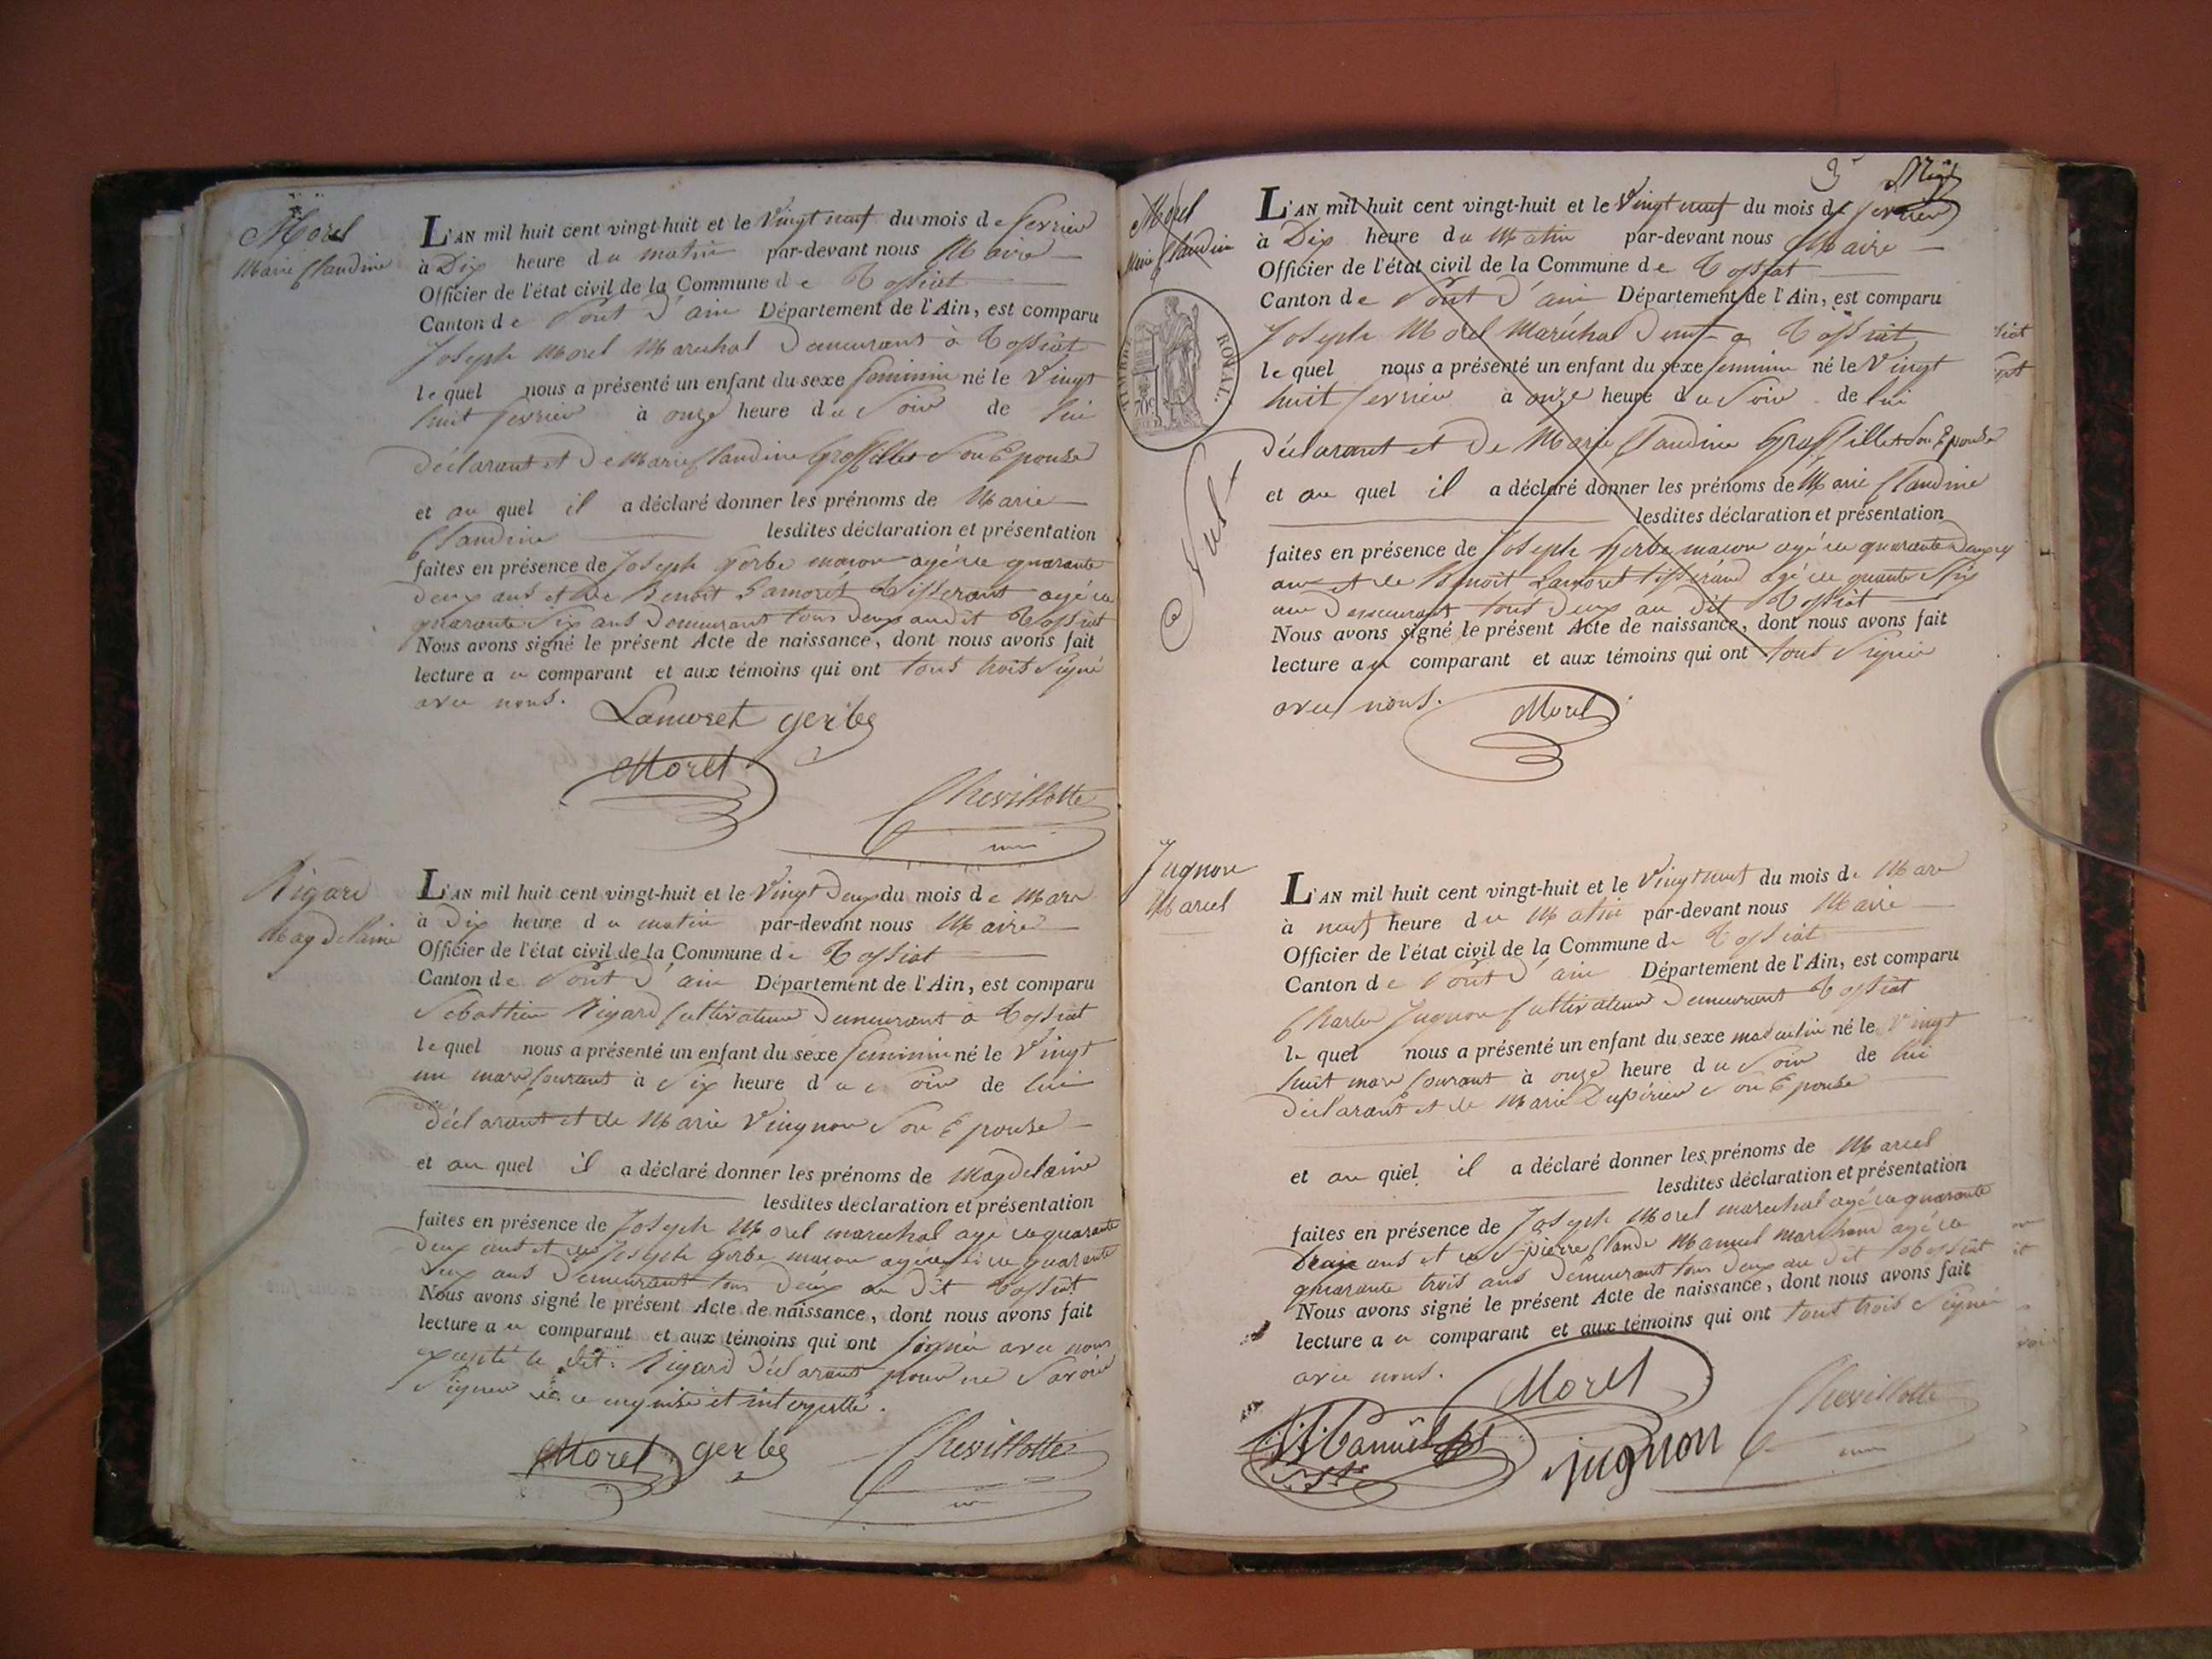 Morel
Marie Claudine
L'AN mil huit cent vingt-huit et le Vingt neuf du mois de fevrier
à Dix heure du matin par-devant nous Maire
Officier de l'état civil de la Commune de Tossiat
Canton de Pont d'ain Département de l'Ain, est comparu
Joseph Morel Marechal Demeurant à Tossiat
lequel nous a présenté un enfant du sexe feminin né le Vingt
huit fevrier à onze heure du Soir de lui
Déclarant et De Marie Claudine Groffillet Son Epouse
et au quel il a déclaré donner les prénoms de Marie
Claudine lesdites déclaration et présentation
faites en présence de Joseph Gerbe macon agé de quarante
deux ans et de Benoit Lamoret Tisserant agé de
quarante Six ans Demeurant tous Deux audit Tossiat
Nous avons signé le présent Acte de naissance, dont nous avons fait
lecture au comparant et aux témoins qui ont tous trois Signé
avec nous.
Lamoret gerbe
Morel
Chevillotte
Rigard
Magdelaine
L'AN mil huit cent vingt-huit et le Vingt Deux du mois de Mars
à Dix heure du matin par-devant nous Maire
Officier de l'état civil de la Commune de Tossiat
Canton de Pont d'ain Département de l'Ain, est comparu
Sebastien Rigard Cultivateur Demeurant à Tossiat
lequel nous a présenté un enfant du sexe feminin né le Vingt
un mars Courant à Six heure du Soir de lui
Déclarant et de Marie Vingnon Son Epouse
et au quel il a déclaré donner les prénoms de Magdelaine
lesdites déclaration et présentation
faites en présence de Joseph Morel marechal agé de quarante
Deux ans et de Joseph Gerbe macon agé de quarante
Deux ans Demeurant tous Deux au dit Tossiat
Nous avons signé le présent Acte de naissance, dont nous avons fait
lecture au comparant et aux témoins qui ont Signé avec nous
excepté le dit Rigard Déclarant pour ne Savoir
Signer de ce enquise et interpellé.
Morel gerbe Chevillotte
3
Morel
Marie Claudine
TIMBRE ROYAL.
70c
Nul
L'AN mil huit cent vingt-huit et le Vingt neuf du mois de fevrier
à Dix heure du Matin par-devant nous Maire
Officier de l'état civil de la Commune de Tossiat
Canton de Pont d'ain Département de l'Ain, est comparu
Joseph Morel Maréchal Demt a Tossiat
lequel nous a présenté un enfant du sexe feminin né le Vingt
huit fevrier à onze heure du Soir de lui
Déclarant et De Marie Claudine Groffillet Son Epouse
et au quel il a déclaré donner les prénoms de Marie Claudine
lesdites déclaration et présentation
faites en présence de Joseph Gerbe macon agé de quarante Deux
ans et de Benoit Lamoret tisserand agé de quante Six
ans Demeurant tous Deux au dit Tossiat
Nous avons signé le présent Acte de naissance, dont nous avons fait
lecture au comparant et aux témoins qui ont tous Signer
avec nous.
Morel
Jugnon
Marcel
L'AN mil huit cent vingt-huit et le Vingt neuf du mois de Mars
à neuf heure du Matin par-devant nous Maire
Officier de l'état civil de la Commune de Tossiat
Canton de Pont d'ain Département de l'Ain, est comparu
Charles Jugnon Cultivateur Demeurant Tossiat
lequel nous a présenté un enfant du sexe masculin né le Vingt
huit mars Courant à onze heure du Soir de lui
Déclarant et de Marie Dupérier Son Epouse
et au quel il a déclaré donner les prénoms de Marcel
lesdites déclaration et présentation
faites en présence de Joseph Morel marechal agé de quarante
ans et de pierre Claude Manuel marchand agé de
quarante trois ans Demeurant tous Deux au dit Tossiat
Nous avons signé le présent Acte de naissance, dont nous avons fait
lecture au comparant et aux témoins qui ont tous trois Signé
avec nous.
Morel
Manuel jugnon Chevillotte